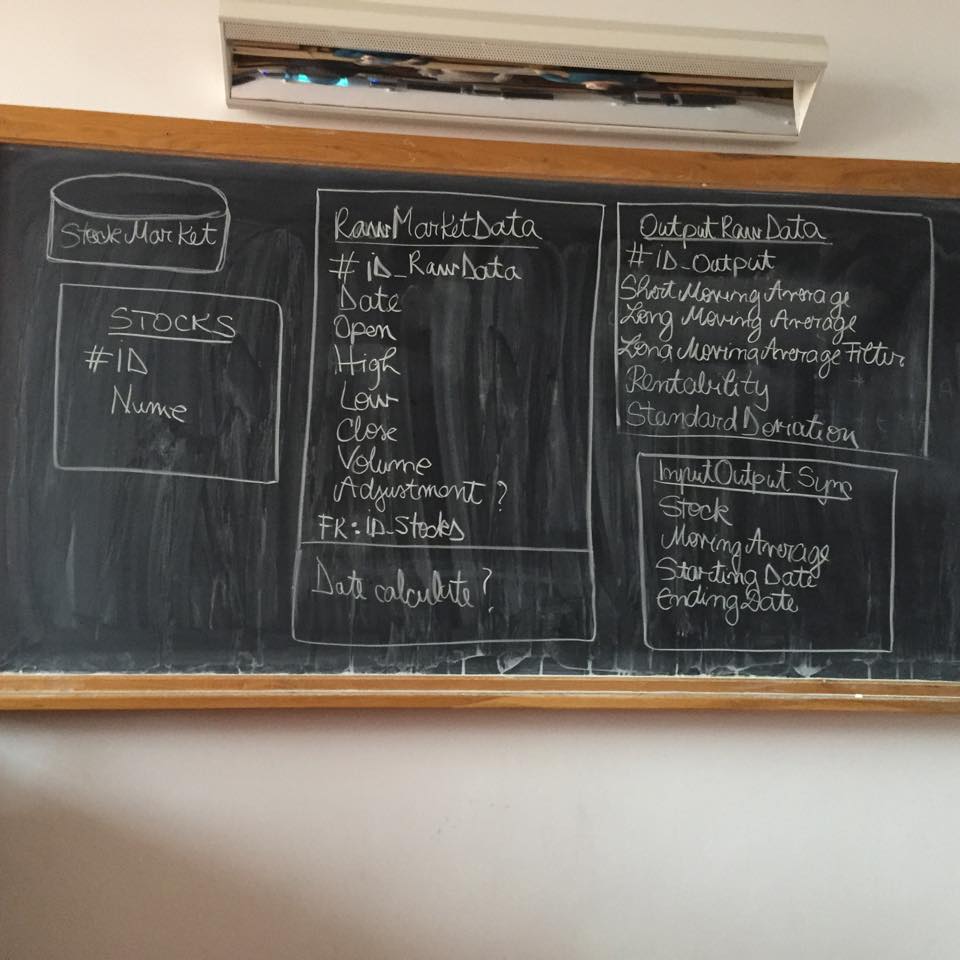 StockMarket
STOCKS
#iD
Nume
RawMarketData
# iD_RawData
Date
Open
High
Low
Close
Volume
Adjustment ?
FK: iD_Stocks
Date calculate?
OutputRawData
# iD_Output
Short Moving Average
Long Moving Average
Long Moving Average Filter
Rentability
Standard Deviation
InputOutput Sym
Stock
Moving Average
Starting Date
Ending Date